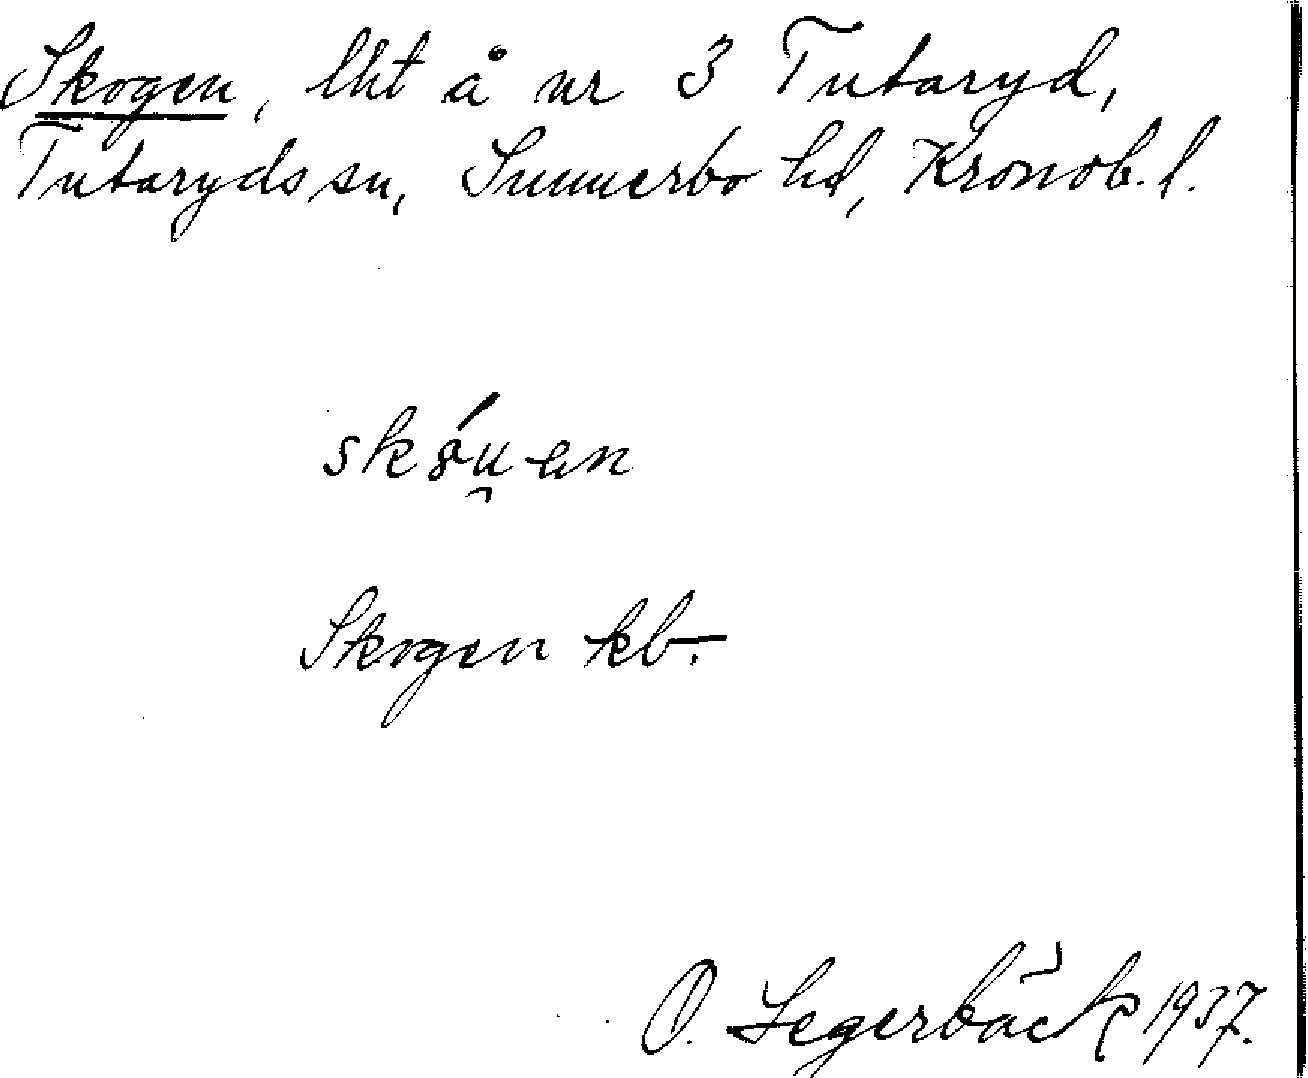 Skogen, lht å nr 3 Tutaryd,
Tutaryds sn, Sunnerbo hd, Kronob. l.
Skogen kb.
O. Segerbäck 1937.